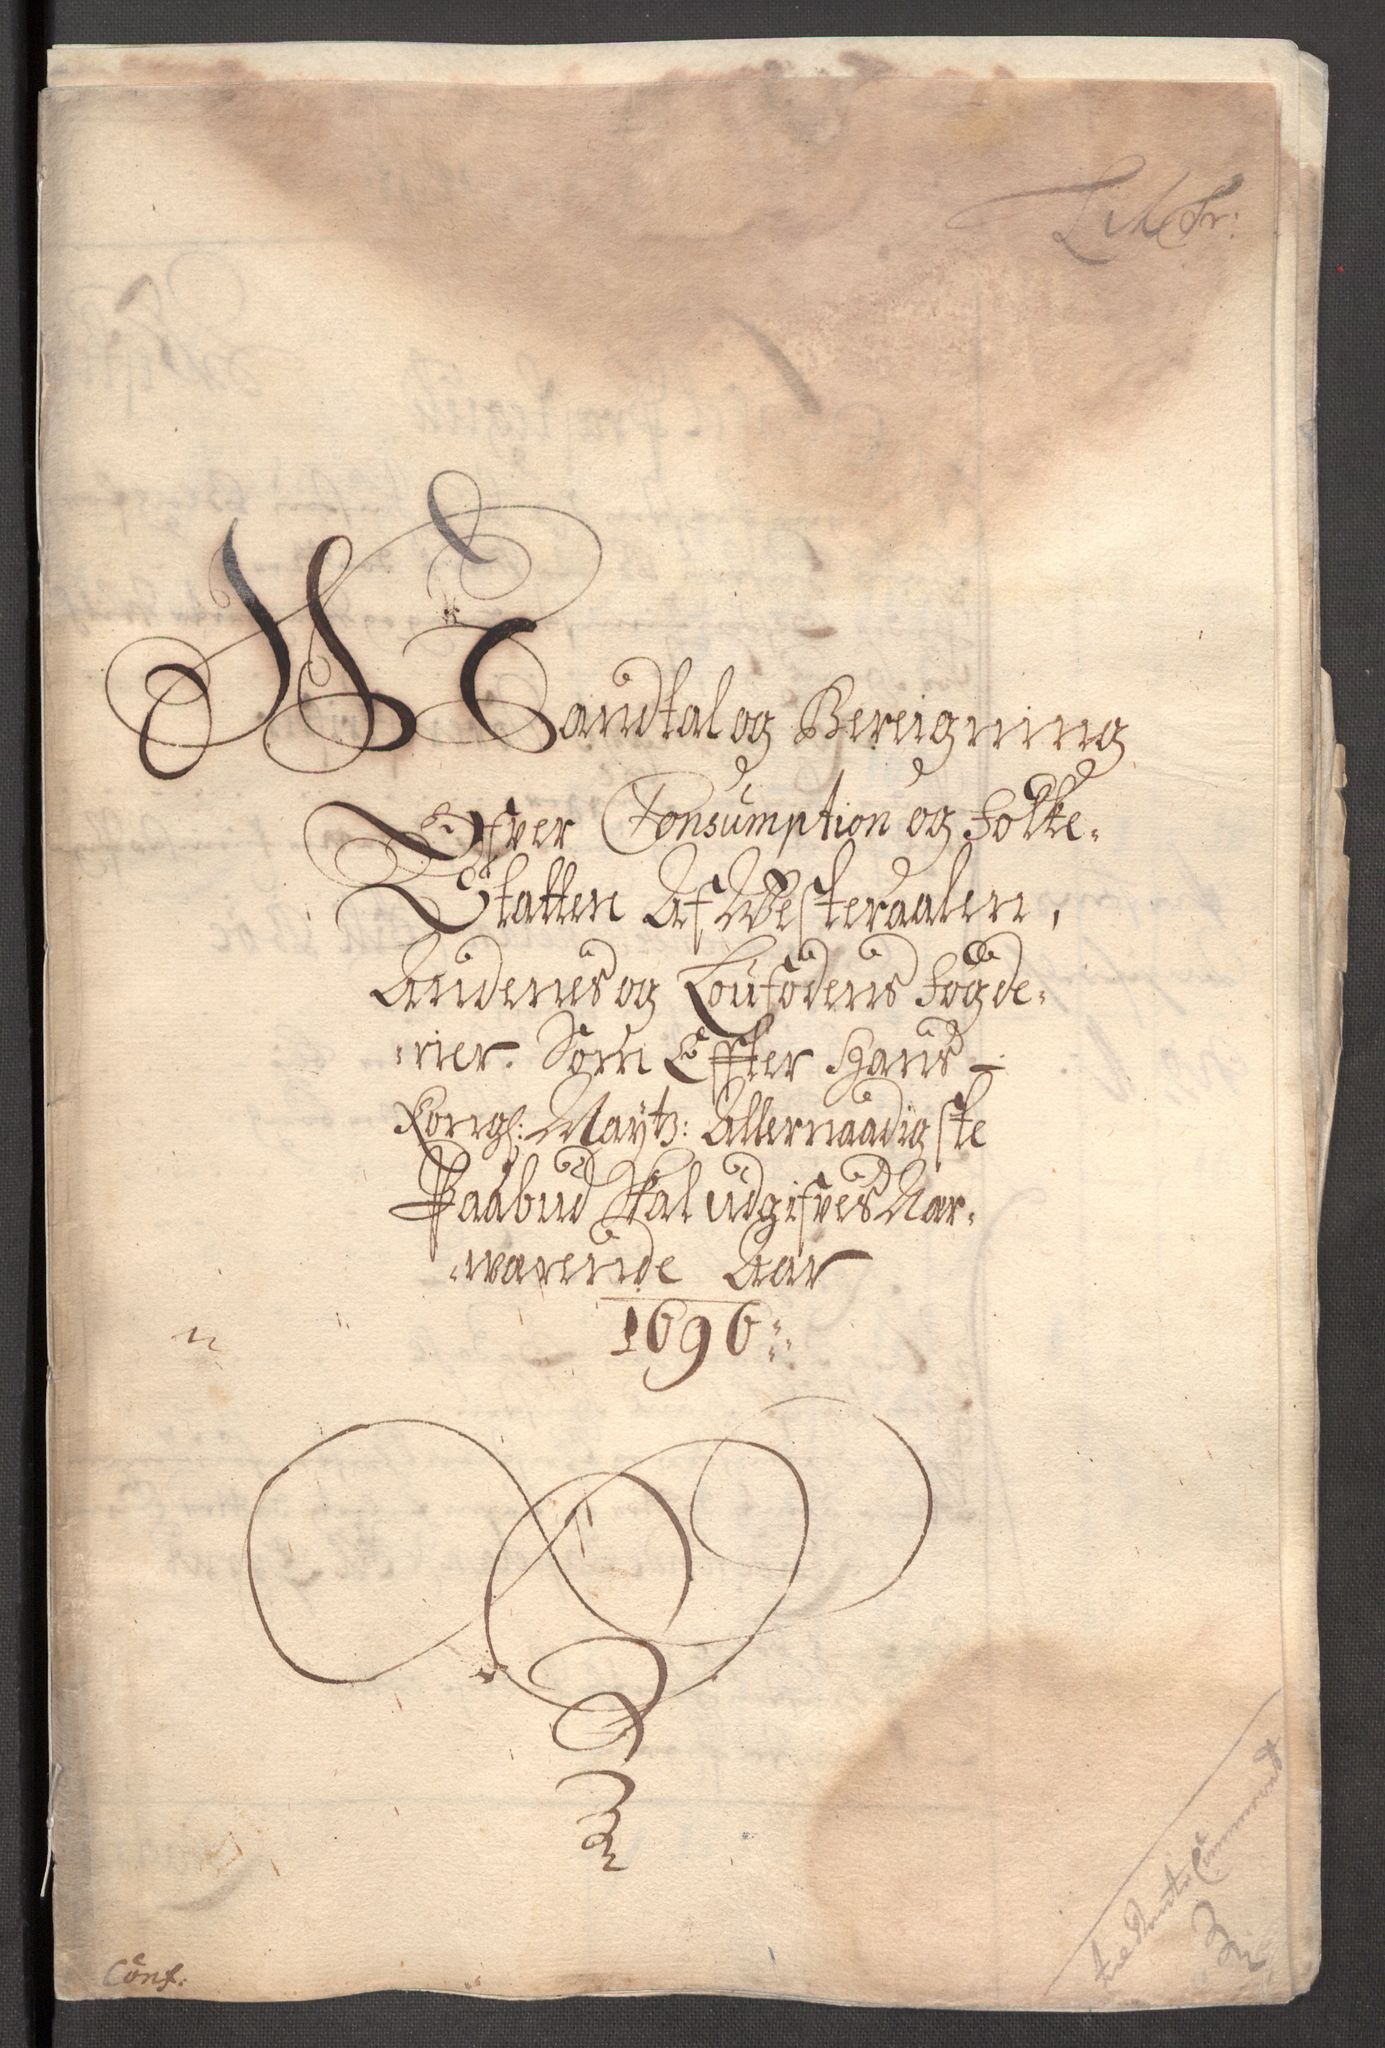 Mandtal og Bereigning
Ofver Consumption og Folke-
Skatten Af Westeraalen,
Andenes og Loufodens Fogde-
rier. Som Effter Hans
Kongl: Maytz: Allernaadigste
Paabud skal udgifves Nær-
wærende Aar
1696
Conf: